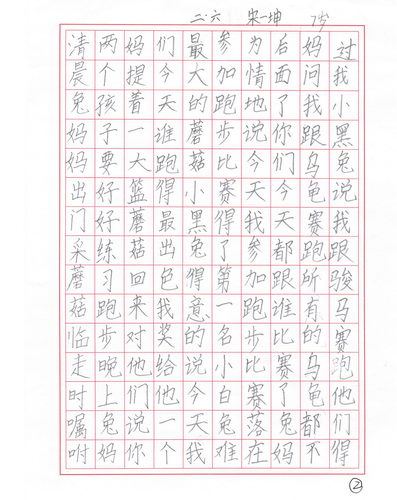 二.六 宋一坤 7岁
清晨兔妈妈出门采蘑菇临走时嘱咐
两个孩子要好好练习跑步晚上兔妈
妈提着一大篮蘑菇回来对他们说你
们今天谁跑得最出色我奖给他一个
最大的蘑菇小黑兔得意的说今天我
参加跑步比赛得了第一名小白兔难
为情地说今天我参加跑步比赛落在
后面了你们今天都跟谁比赛了兔妈
妈问我跟乌龟赛跑所有的乌龟都不
过我小黑兔说我跟骏马赛跑他们得
②